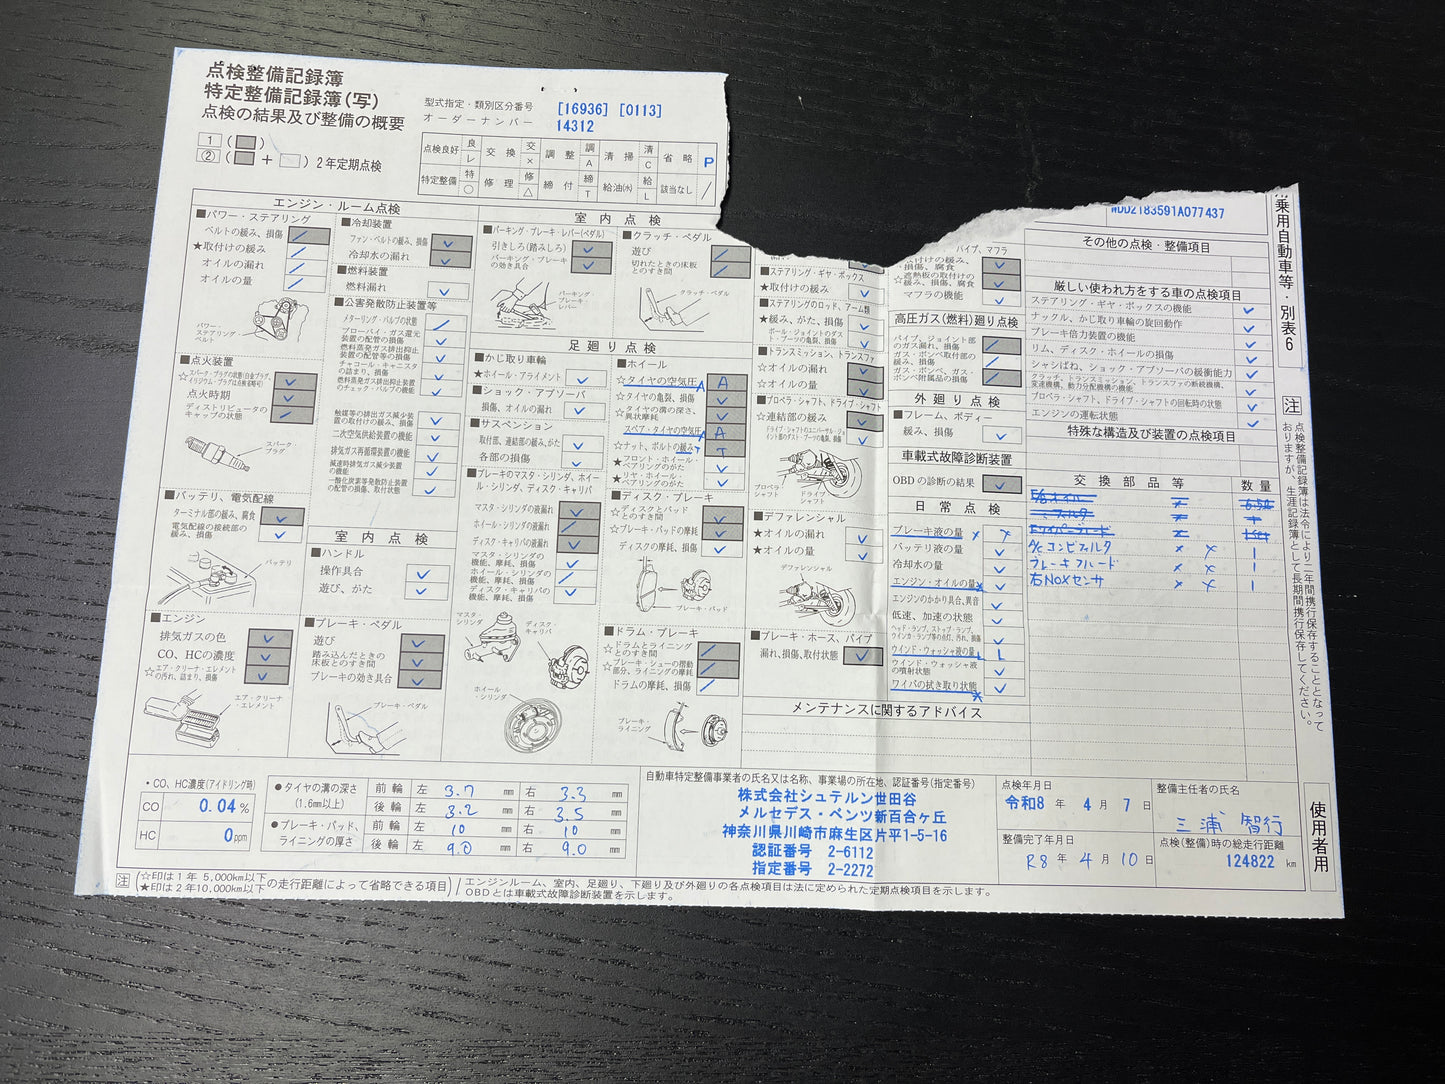 点検整備記録簿
特定整備記録簿(写)
点検の結果及び整備の概要
型式指定・類別区分番号 [16936] [0113]
オーダーナンバー 14312
1 ( )
② ( + ) 2年定期点検
点検良好 良 レ 交換 交 × 調整 調 A 清掃 清 C 省略 P
特定整備 特 ○ 修理 修 △ 締付 締 T 給油(水) 給 L 該当なし /
WDD2183591A077437
乗用自動車等・別表6
エンジン・ルーム点検
■パワー・ステアリング
ベルトの緩み、損傷 /
★取付けの緩み /
オイルの漏れ /
オイルの量 /
パワー・ステアリング・ベルト
■点火装置
☆スパーク・プラグの状態(白金プラグ、イリジウム・プラグは点検省略可) レ
点火時期 レ
ディストリビュータのキャップの状態 /
スパーク・プラグ
■バッテリ、電気配線
ターミナル部の緩み、腐食 レ
電気配線の接続部の緩み レ
バッテリ
■エンジン
排気ガスの色 レ
CO、HCの濃度 レ
☆エア・クリーナ・エレメントの汚れ、詰まり、損傷 レ
エア・クリーナ・エレメント
■冷却装置
ファン・ベルトの緩み、損傷 レ
冷却水の漏れ レ
■燃料装置
燃料漏れ レ
■公害発散防止装置等
メターリング・バルブの状態 /
ブローバイ・ガス還元装置の配管の損傷 レ
燃料蒸発ガス排出抑止装置の配管等の損傷 レ
チャコール・キャニスタの詰まり、損傷 レ
燃料蒸発ガス排出抑止装置のチェック・バルブの機能 レ
触媒等の排出ガス減少装置の取付けの緩み、損傷 レ
二次空気供給装置の機能 レ
排気ガス再循環装置の機能 レ
減速時排気ガス減少装置の機能 レ
一酸化炭素等発散防止装置の配管の損傷、取付状態 レ
室内点検
■ハンドル
操作具合 レ
遊び、がた レ
■ブレーキ・ペダル
遊び レ
踏み込んだときの床板とのすき間 レ
ブレーキの効き具合 レ
ブレーキ・ペダル
室内点検
■パーキング・ブレーキ・レバー(ペダル)
引きしろ(踏みしろ) レ
パーキング・ブレーキの効き具合 レ
パーキング・ブレーキ・レバー
■クラッチ・ペダル
遊び /
切れたときの床板とのすき間 /
クラッチ・ペダル
足廻り点検
■かじ取り車輪
★ホイール・アライメント レ
■ショック・アブソーバ
損傷、オイルの漏れ レ
■サスペンション
取付部、連結部の緩み、がた レ
各部の損傷 レ
■ブレーキのマスタ・シリンダ、ホイール・シリンダ、ディスク・キャリパ
マスタ・シリンダの液漏れ レ
ホイール・シリンダの液漏れ /
ディスク・キャリパの液漏れ レ
マスタ・シリンダの機能、摩耗、損傷 レ
ホイール・シリンダの機能、摩耗、損傷 /
ディスク・キャリパの機能、摩耗、損傷 レ
マスタ・シリンダ
ディスク・キャリパ
ホイール・シリンダ
■ホイール
☆タイヤの空気圧 A A
☆タイヤの亀裂、損傷 レ
☆タイヤの溝の深さ、異状摩耗 レ
スペア・タイヤの空気圧 A
☆ナット、ボルトの緩み T T
★フロント・ホイール・ベアリングのがた レ
★リヤ・ホイール・ベアリングのがた レ
■ディスク・ブレーキ
☆ディスクとパッドとのすき間 レ
☆ブレーキ・パッドの摩耗 レ
ディスクの摩耗、損傷 レ
ブレーキ・パッド
■ドラム・ブレーキ
☆ドラムとライニングとのすき間 /
☆ブレーキ・シューの摺動部分、ライニングの摩耗 /
ドラムの摩耗、損傷 /
ブレーキ・ライニング
■ステアリング・ギヤ・ボックス
★取付けの緩み レ
■ステアリングのロッド、アーム類
★緩み、がた、損傷 レ
ボール・ジョイントのダスト・ブーツの亀裂、損傷 レ
■トランスミッション、トランスファ
☆オイルの漏れ レ
☆オイルの量 レ
■プロペラ・シャフト、ドライブ・シャフト
☆連結部の緩み レ
ドライブ・シャフトのユニバーサル・ジョイント部のダスト・ブーツの亀裂、損傷 レ
プロペラ・シャフト
ドライブ・シャフト
■デファレンシャル
★オイルの漏れ レ
★オイルの量 レ
デファレンシャル
■ブレーキ・ホース、パイプ
漏れ、損傷、取付状態 レ
パイプ、マフラ
取付けの緩み、損傷、腐食 レ
☆遮熱板の取付けの緩み、損傷、腐食 レ
マフラの機能 レ
高圧ガス(燃料)廻り点検
パイプ、ジョイント部のガス漏れ、損傷 /
ガス・ボンベ取付部の緩み、損傷 /
ガス・ボンベ、ガス・ボンベ付属品の損傷 /
外廻り点検
■フレーム、ボディー
緩み、損傷 レ
車載式故障診断装置
OBDの診断の結果 レ
日常点検
ブレーキ液の量 × ×
バッテリ液の量 レ
冷却水の量 レ
エンジン・オイルの量 × レ
エンジンのかかり具合、異音 レ
低速、加速の状態 レ
ヘッド・ランプ、ストップ・ランプ、ウインカ・ランプ等の点灯、汚れ、損傷 レ
ウインド・ウォッシャ液の量 L L
ウインド・ウォッシャ液の噴射状態 レ
ワイパの拭き取り状態 × レ
メンテナンスに関するアドバイス
その他の点検・整備項目
厳しい使われ方をする車の点検項目
ステアリング・ギヤ・ボックスの機能 レ
ナックル、かじ取り車輪の旋回動作 レ
ブレーキ倍力装置の機能 レ
リム、ディスク・ホイールの損傷 レ
シャシばね、ショック・アブソーバの緩衝能力 レ
クラッチ、トランスミッション、トランスファの断続機構、変速機構、動力分配機構の機能 レ
プロペラ・シャフト、ドライブ・シャフトの回転時の状態 レ
エンジンの運転状態 レ
特殊な構造及び装置の点検項目
交換部品等 数量
A/Cコンビフィルタ × × 1
ブレーキフルード × × 1
右NOXセンサ × × 1
注 点検整備記録簿は法令により二年間携行保存することとなっておりますが、生涯記録簿として長期間携行保存してください。
使用者用
・CO、HC濃度(アイドリング時)
CO 0.04 %
HC 0 ppm
●タイヤの溝の深さ (1.6mm以上) 前輪 左 3.7 mm 右 3.3 mm
後輪 左 3.2 mm 右 3.5 mm
●ブレーキ・パッド、ライニングの厚さ 前輪 左 10 mm 右 10 mm
後輪 左 9.0 mm 右 9.0 mm
自動車特定整備事業者の氏名又は名称、事業場の所在地、認証番号(指定番号)
株式会社シュテルン世田谷
メルセデス・ベンツ新百合ヶ丘
神奈川県川崎市麻生区片平1-5-16
認証番号 2-6112
指定番号 2-2272
点検年月日
令和8 年 4 月 7 日
整備完了年月日
R8 年 4 月 10 日
整備主任者の氏名
三浦 智行
点検(整備)時の総走行距離
124822 km
注 (☆印は1年 5,000km以下 ★印は2年10,000km以下の走行距離によって省略できる項目)
エンジンルーム、室内、足廻り、下廻り及び外廻りの各点検項目は法に定められた定期点検項目を示します。
OBDとは車載式故障診断装置を示します。